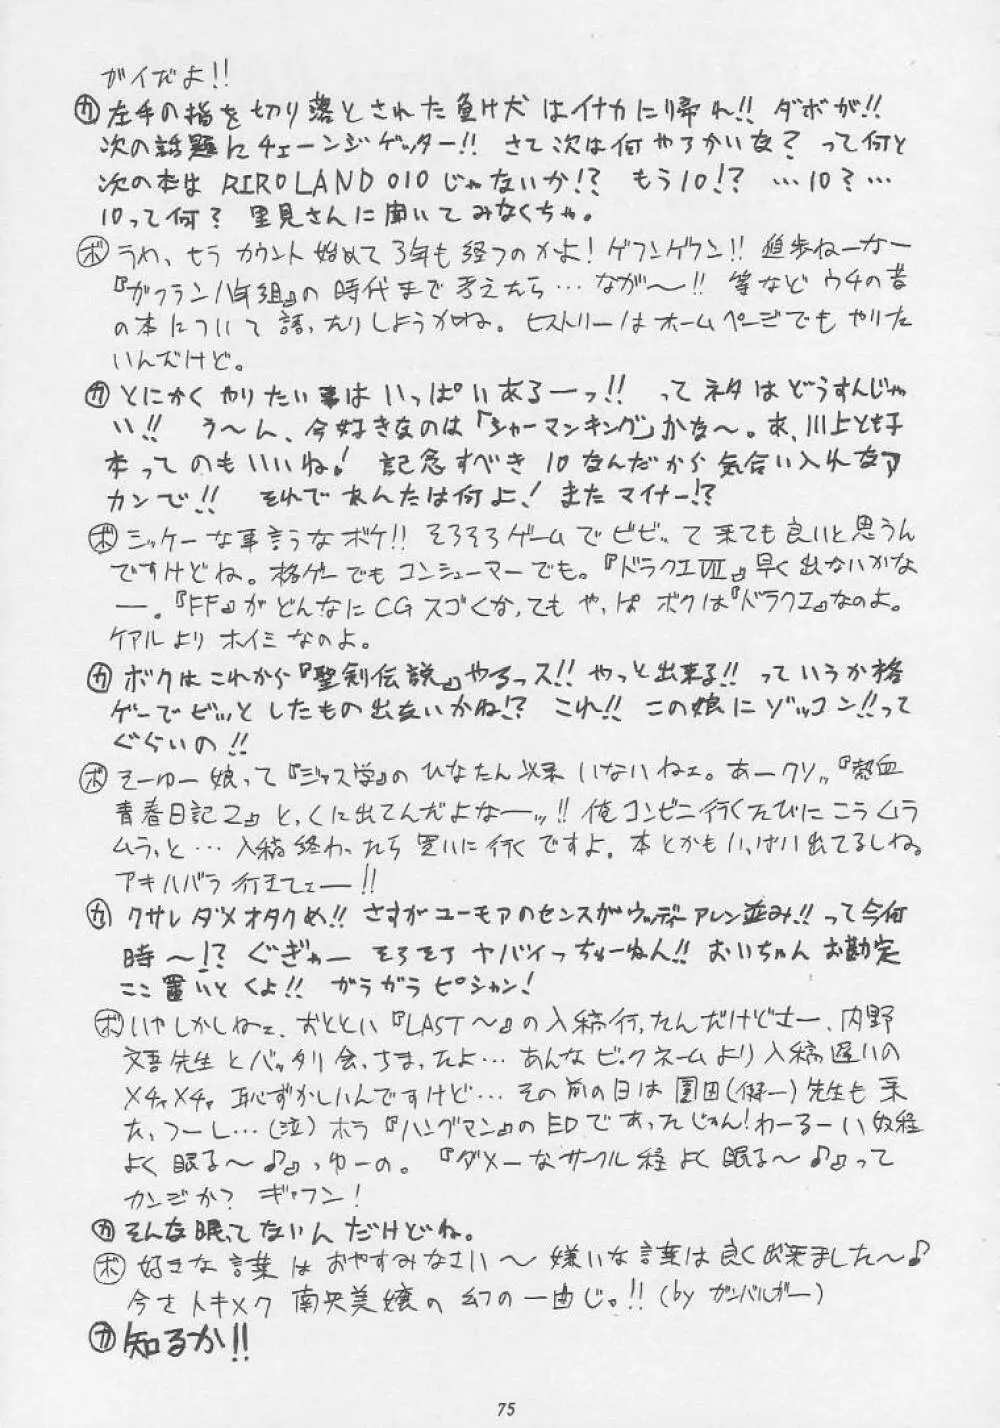 ガイだよ!!
㋕左手の指を切り落とされた負け犬はイナカに帰れ!! ダボが!!
次の話題にチェーンジゲッター!! さて次は何やろかいな? って何と
次の本は RIROLAND010じゃないか!? もう10!? …10?…
10って何? 里見さんに聞いてみなくちゃ。
ボ うわ、もう カウント始めて3年も経つのかよ! ゲフンゲフン!! 進歩ねーなー
『ガフラン八年組』の時代まで考えたら…なが〜!! 等などウチの昔
の本について語ったりしようかね。ヒストリーはホームページでもやりた
いんだけど。
㋕とにかくやりたい事はいっぱいあるーっ!! ってネタはどうすんじゃ
い!! う〜ん、今好きなのは「シャーマンキング」かな〜。あ、川上とも子
本ってのもいいね! 記念すべき10なんだから気合い入れなア
カンで!! それであんたは何よ! またマイナー!?
ボ シッケーな事言うなボケ!! そろそろゲームでビビッて来ても良いと思うん
ですけどね。格ゲーでもコンシューマーでも。『ドラクエⅦ』早く出ないかな
ー。『FF』がどんなにCGスゴくなってもやっぱボクは『ドラクエ』なのよ。
ケアルよりホイミなのよ。
㋕ボクはこれから『聖剣伝説』やるっス!! やっと出来る!! っていうか格
ゲーでビッとしたもの出ないかね!? これ!! この娘にゾッコン!!って
ぐらいの!!
ボ そーゆー娘って『ジャス学』のひなたん以来いないねェ。あークソッ『熱血
青春日記2』とっくに出てんだよなーッ!! 俺コンビニ行くたびにこうムラ
ムラっと…入稿終わったら買いに行くですよ。本とかもいっぱい出てるしね。
アキハバラ行きてェー!!
㋕クサレダメオタクめ!! さすがユーモアのセンスがウッディ・アレン並み!!って今何
時〜!? ぐぎゃー そろそろヤバイっちゅーねん!! おいちゃんお勘定
ここ置いとくよ!! ガラガラピシャン!
ボ いやしかしねェ、おととい『LAST〜』の入稿行ったんだけどさー、内野
文吾先生とバッタリ会っちまったよ…あんなビックネームより入稿遅いの
メチャメチャ恥ずかしいんですけど…その前の日は園田(健一)先生も来
たっつーし…(泣)ホラ『ハングマン』のEDであったじゃん!わーるーい奴程
よく眠る〜♪』っゆーの。『ダメーなサークル程よく眠る〜♪』って
カンジか? ギャフン!
㋕そんな眠ってないんだけどね。
ボ 好きな言葉はおやすみなさい〜 嫌いな言葉は良く出来ました〜♪
今さトキメク 南央美嬢の幻の一曲じゃ!!(by ガンバルガー)
㋕知るか!!
75